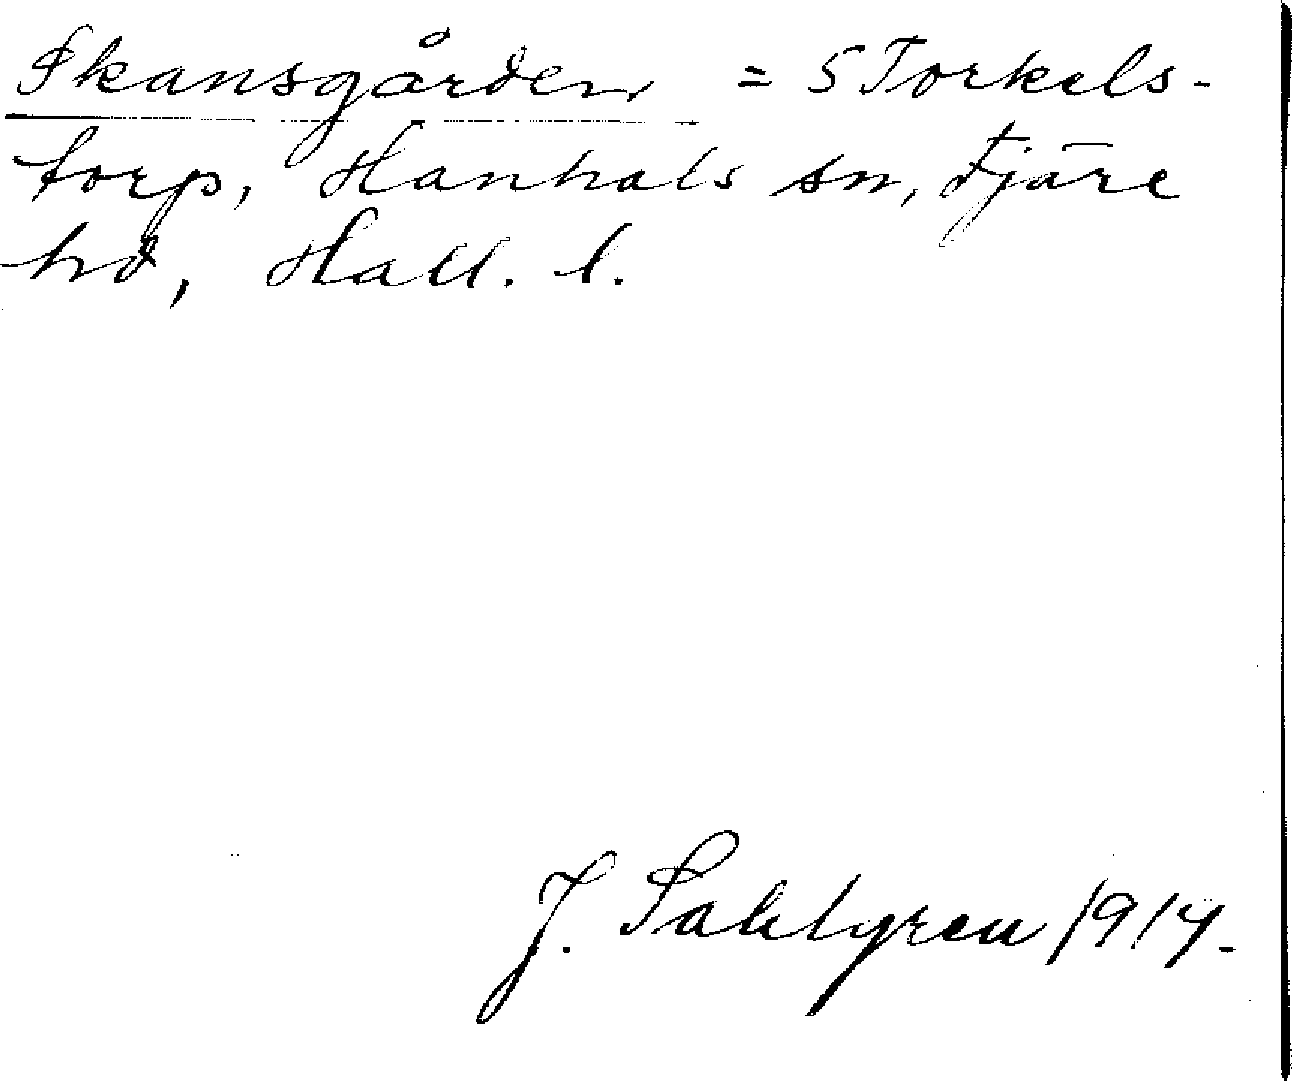 Skansgården = 5 Torkels-
torp, Hanhals sn, Fjäre
hd, Hall. l.
J. Sahlgren 1914.